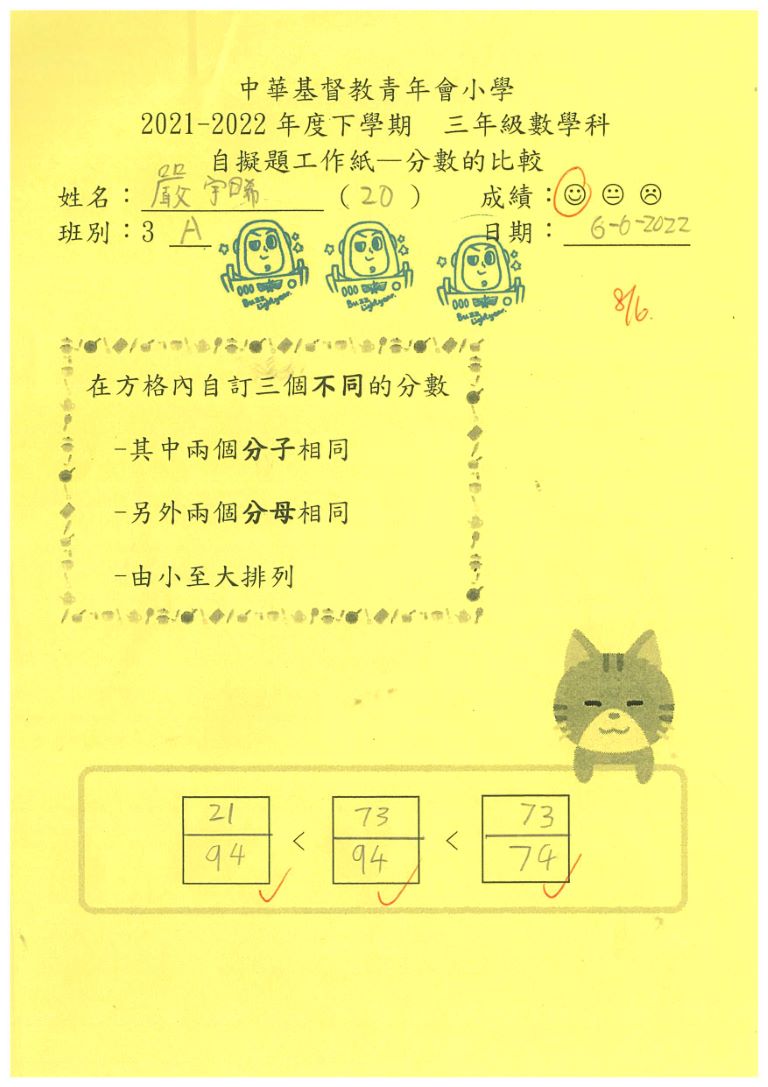 中華基督教青年會小學
2021-2022 年度下學期 三年級數學科
自擬題工作紙—分數的比較
姓名：嚴宇晞 (20) 成績：☺ 😐 ☹
班別：3 A 日期：6-6-2022
Buzz Lightyear. Buzz Lightyear. Buzz Lightyear.
8/6.
在方格內自訂三個不同的分數
-其中兩個分子相同
-另外兩個分母相同
-由小至大排列
21 73 73
< <
94 94 74